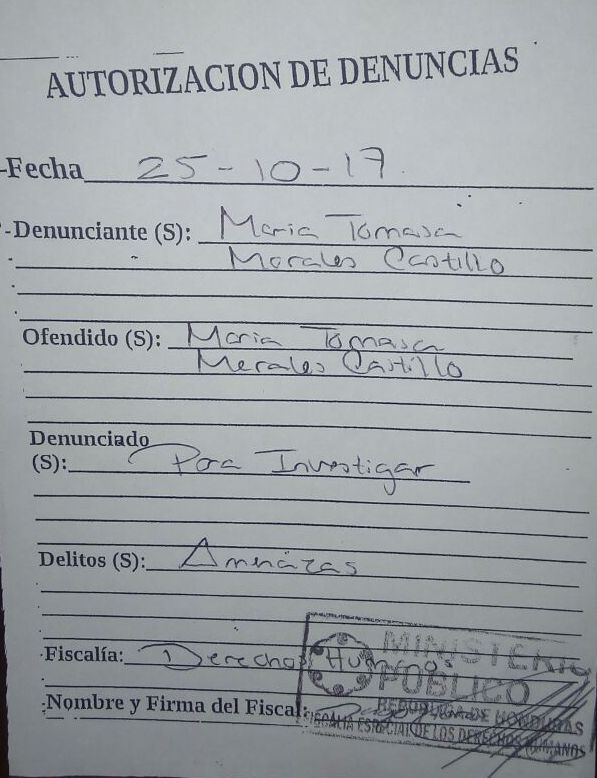 AUTORIZACION DE DENUNCIAS
-Fecha 25-10-17
-Denunciante (S): Maria Tomasa
Morales Castillo
Ofendido (S): Maria Tomasa
Morales Castillo
Denunciado
(S): Por Investigar
Delitos (S): Amenazas
Fiscalía: Derechos Humanos
MINISTERIO
PÚBLICO
REPUBLICA DE HONDURAS
Nombre y Firma del Fiscal:
FISCALIA ESPECIAL DE LOS DERECHOS HUMANOS